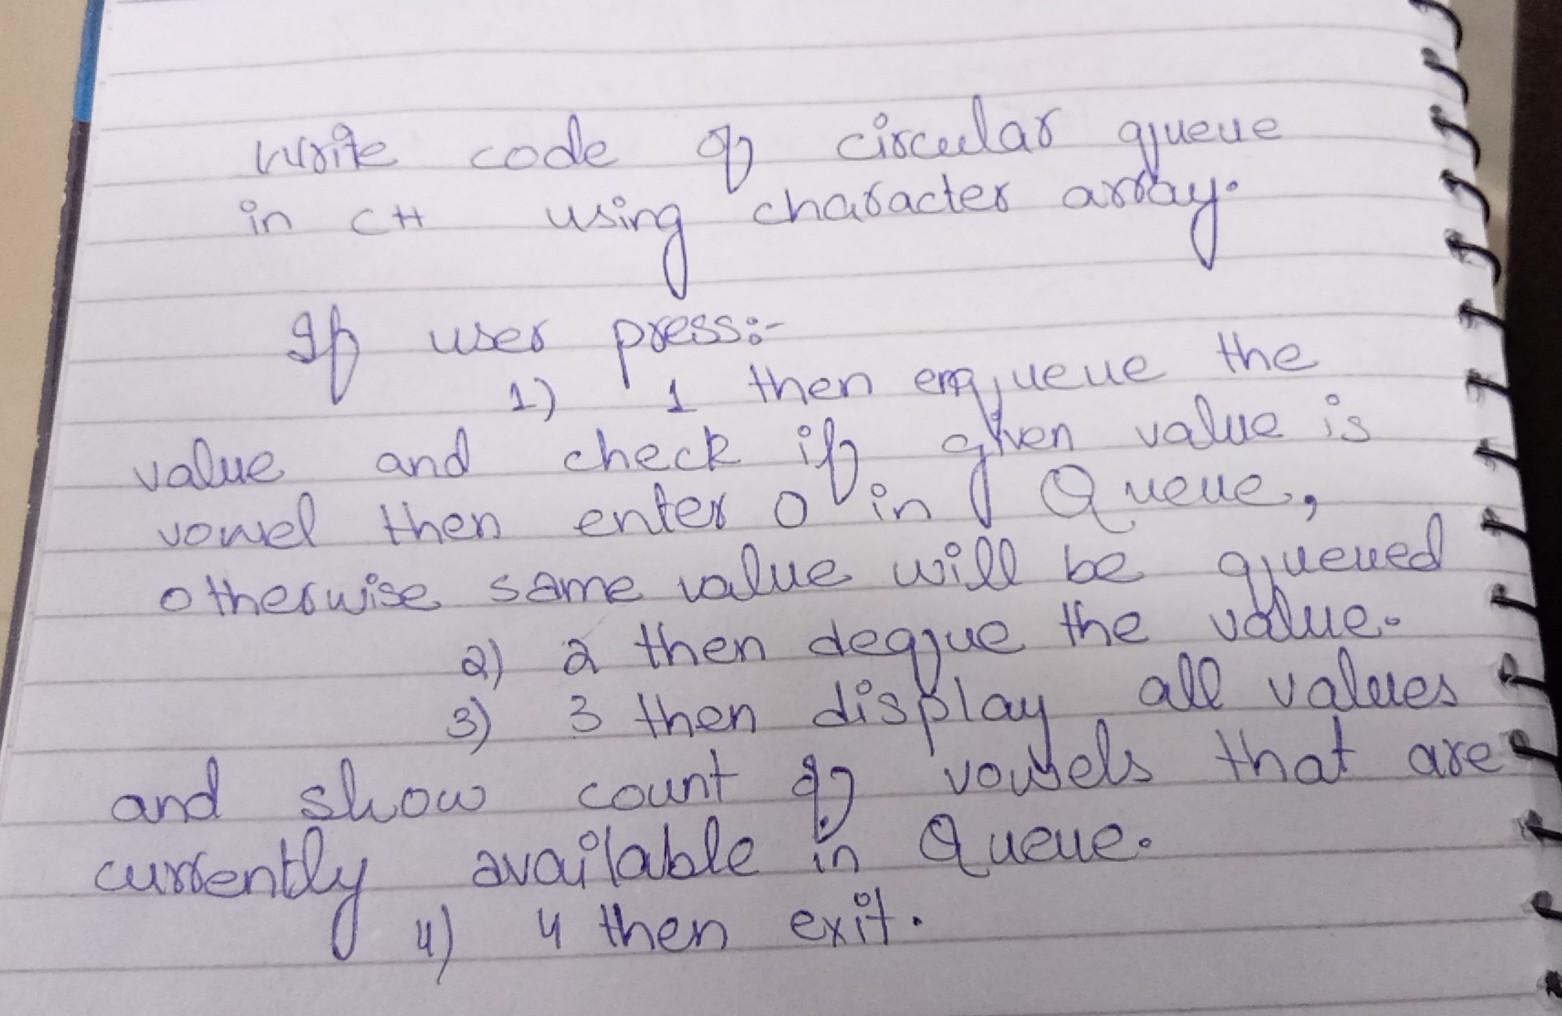 Write code of circular queue
in C++ using character array.
If user press:-
1) 1 then enqueue the
value and check if given value is
vowel then enter 0 in Queue,
otherwise same value will be queued
2) 2 then deqque the value.
3) 3 then display all values
and show count of vowels that are
currently available in Queue.
4) 4 then exit.